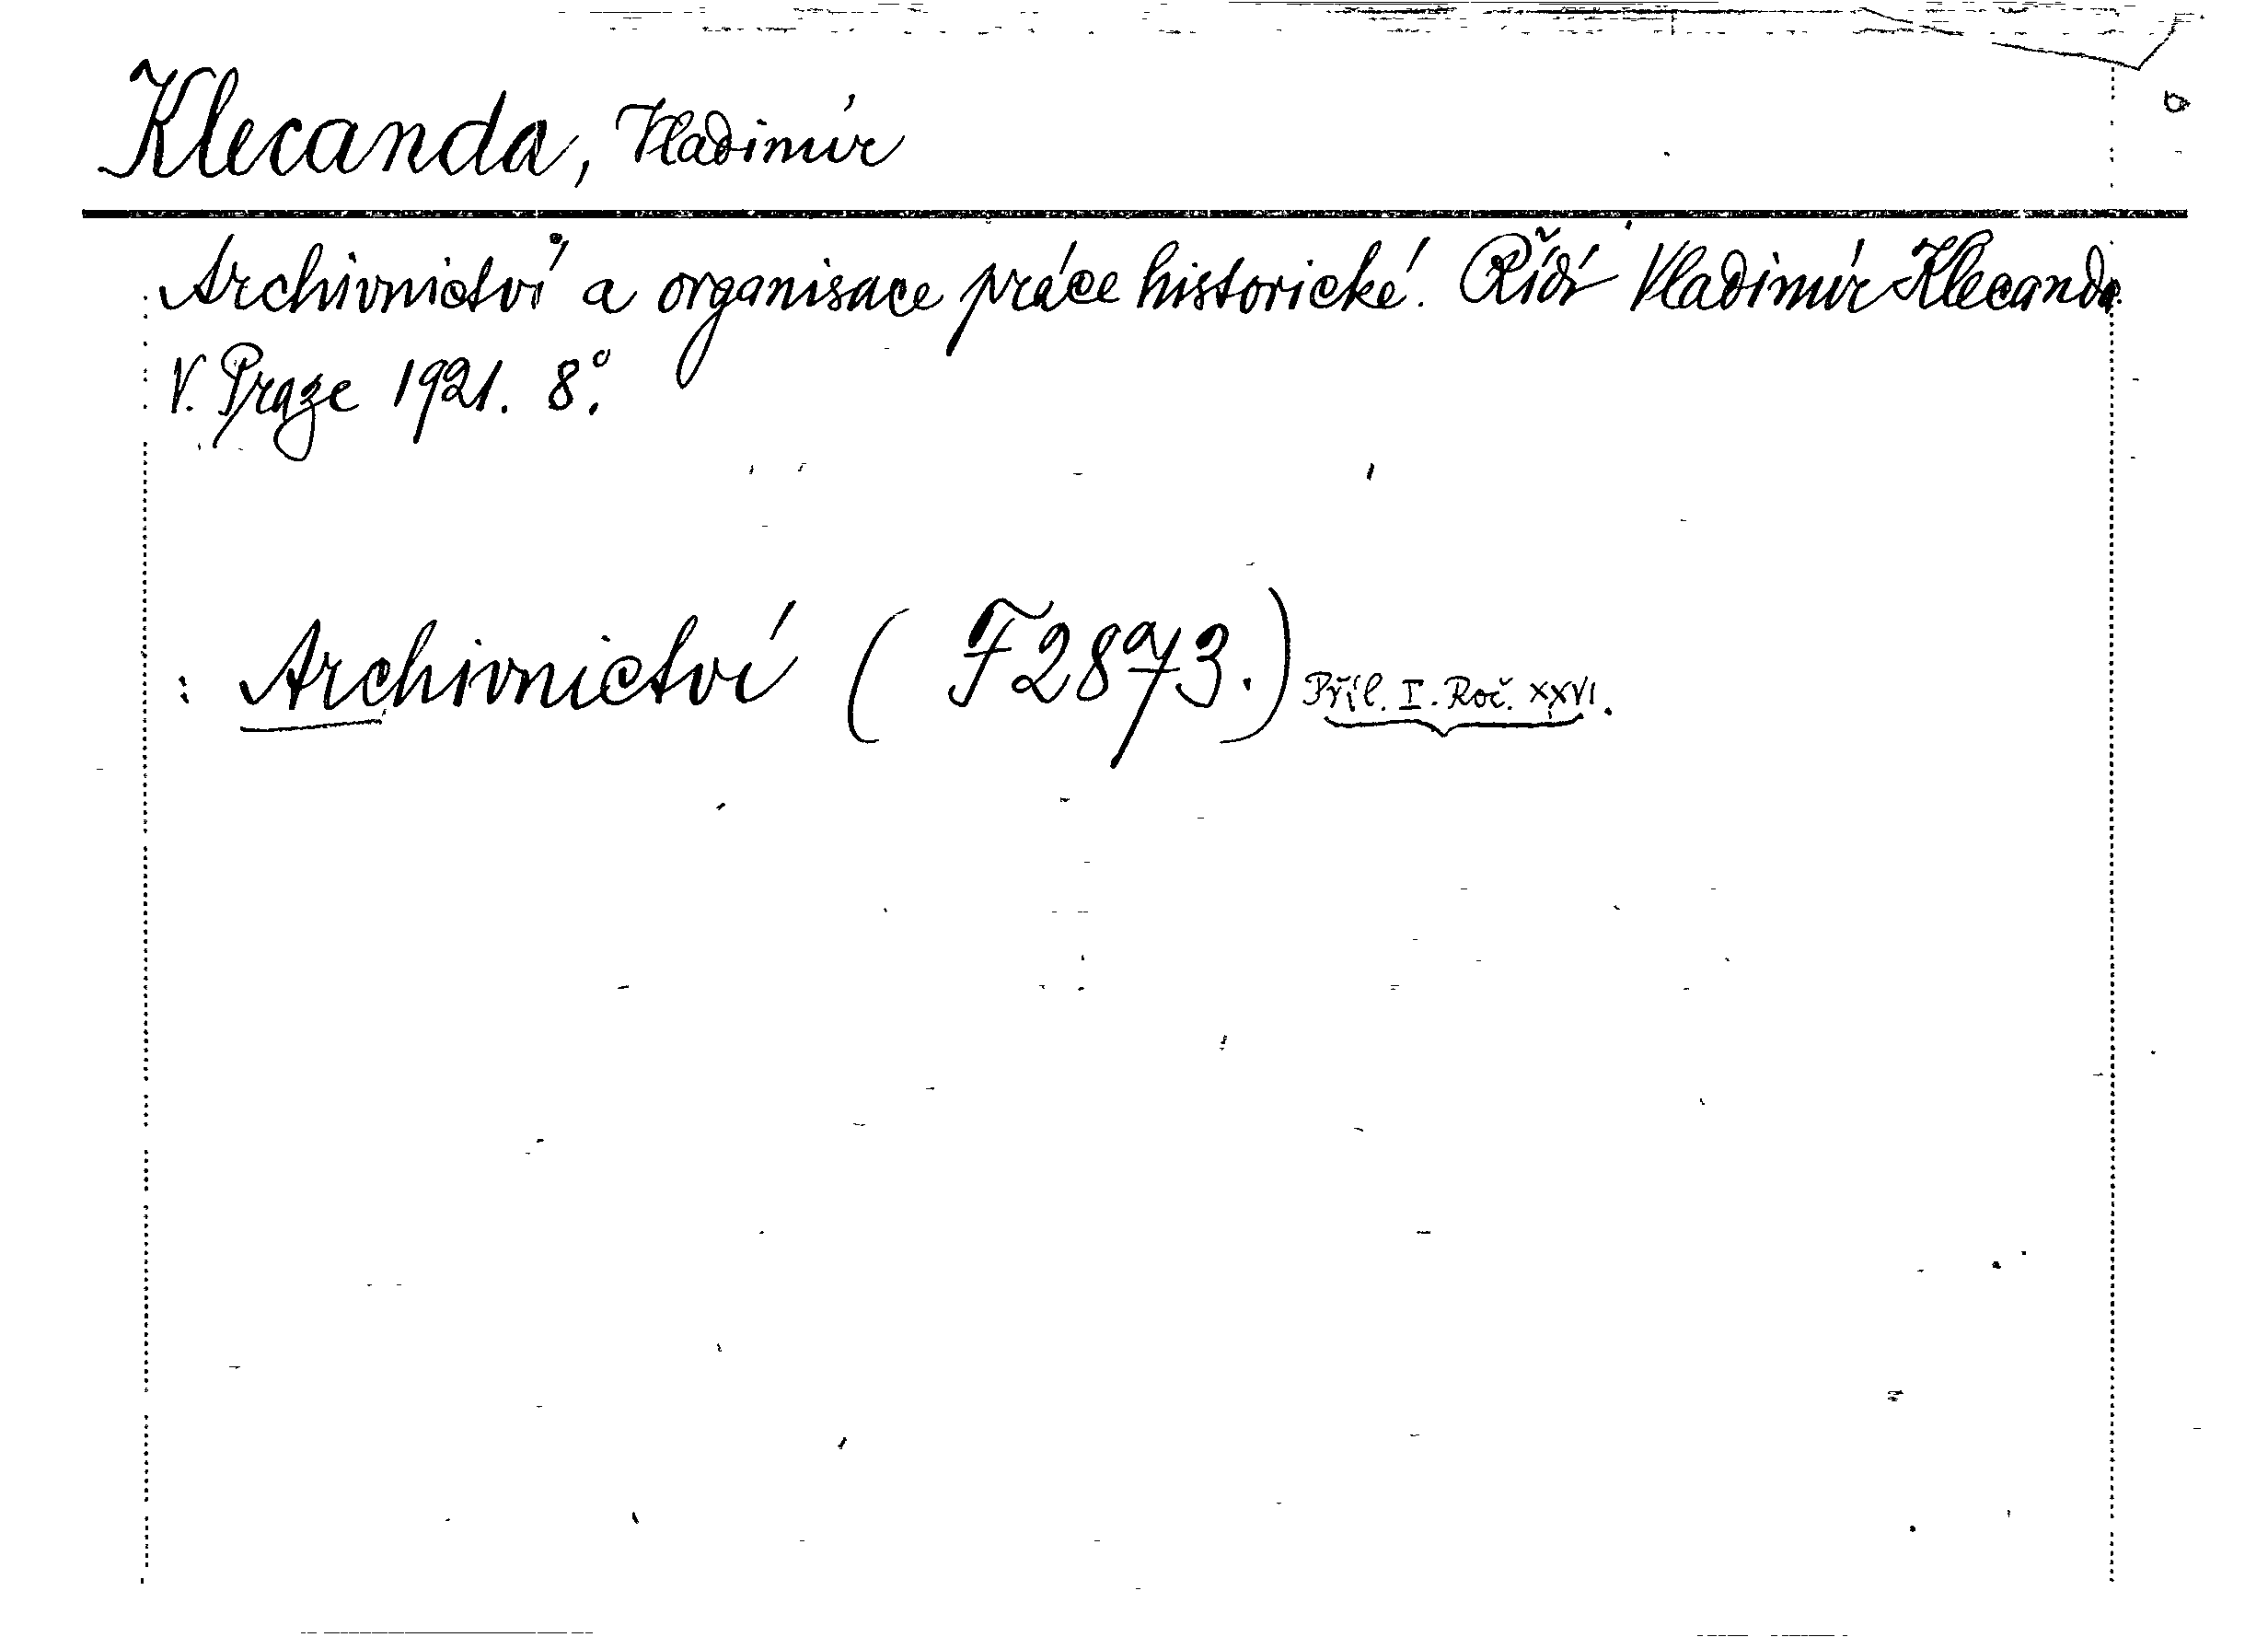 Klecanda, Vladimír
Archivnictví a organisace práce historické. Řídí Vladimír Klecanda.
V. Praze 1921. 8°.
: Archivnictví ( F2873.) Příl. I. Roč. XXVI.